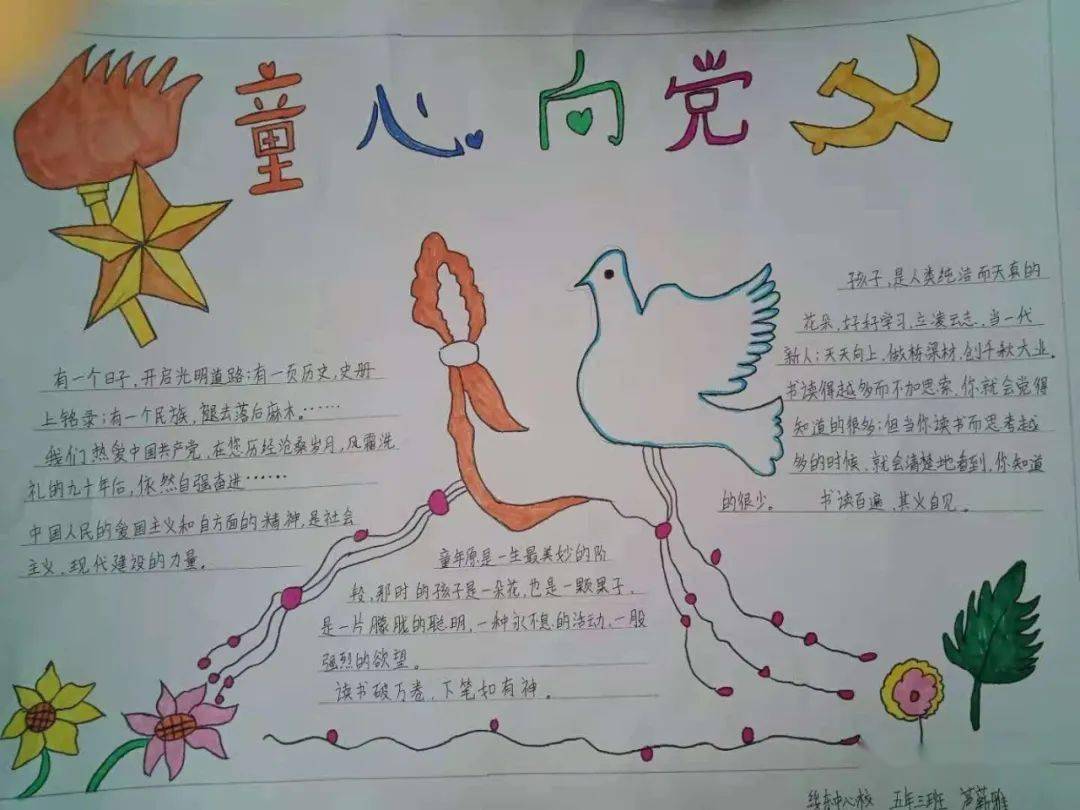 童心向党
有一个日子,开启光明道路;有一页历史,史册
上铭录;有一个民族,腿去落后麻木。……
我们热爱中国共产党,在您历经沧桑岁月,风霜洗
礼的九十年后,依然自强奋进……
中国人民的爱国主义和自方面的精神,是社会
主义,现代建设的力量。
童年原是一生最美妙的阶
段,那时的孩子是一朵花,也是一颗果子,
是一片朦胧的聪明,一种永不息的活动,一股
强烈的欲望。
读书破万卷,下笔如有神。
孩子,是人类纯洁而天真的
花朵,好好学习,立凌云志,当一代
新人;天天向上,做栋梁材,创千秋大业。
书读得越多而不加思索,你就会觉得
知道的很多;但当你读书而思考越
多的时候,就会清楚地看到,你知道
的很少。 书读百遍,其义自见。
中心校 五年三班